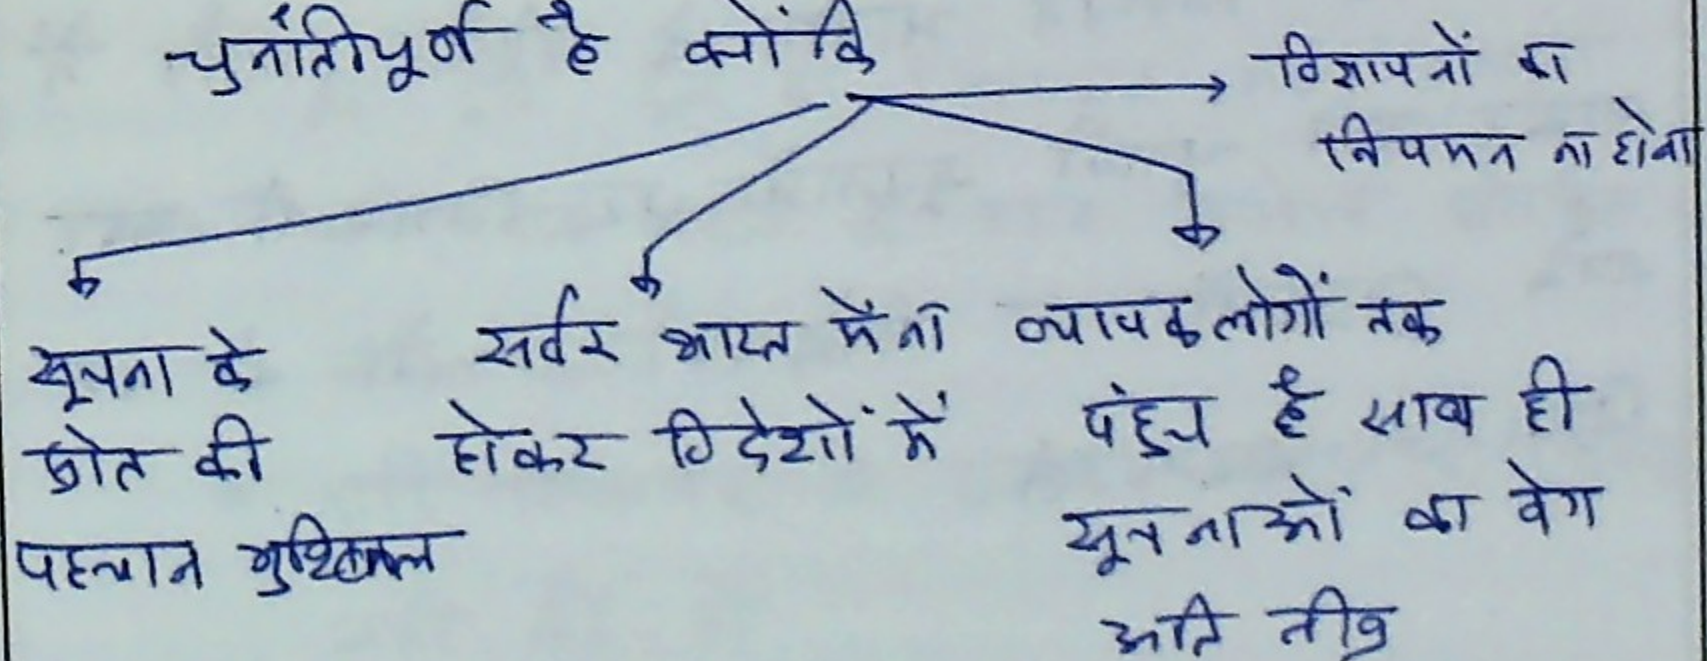 चुनौतीपूर्ण है क्योंकि
विज्ञापनों का
नियमन ना होना
सूचना के
स्रोत की
पहचान मुश्किल
सर्वर भारत में ना
होकर विदेशों में
व्यापक लोगों तक
पंहुच है साथ ही
सूचनाओं का वेग
अति तीव्र